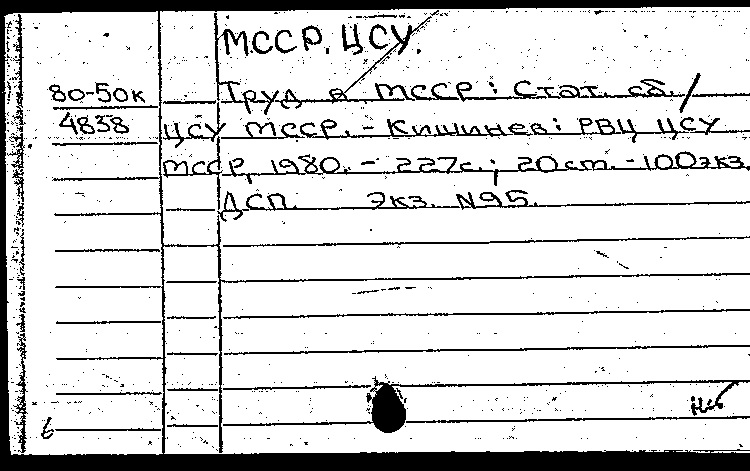 МССР. ЦСУ.
80-50к Труд в МССР: Стат. сб. /
4838 ЦСУ МССР. - Кишинев: РВЦ ЦСУ
МССР, 1980. - 227с.; 20 ст. - 100 экз.
ДСП. Экз. N95.